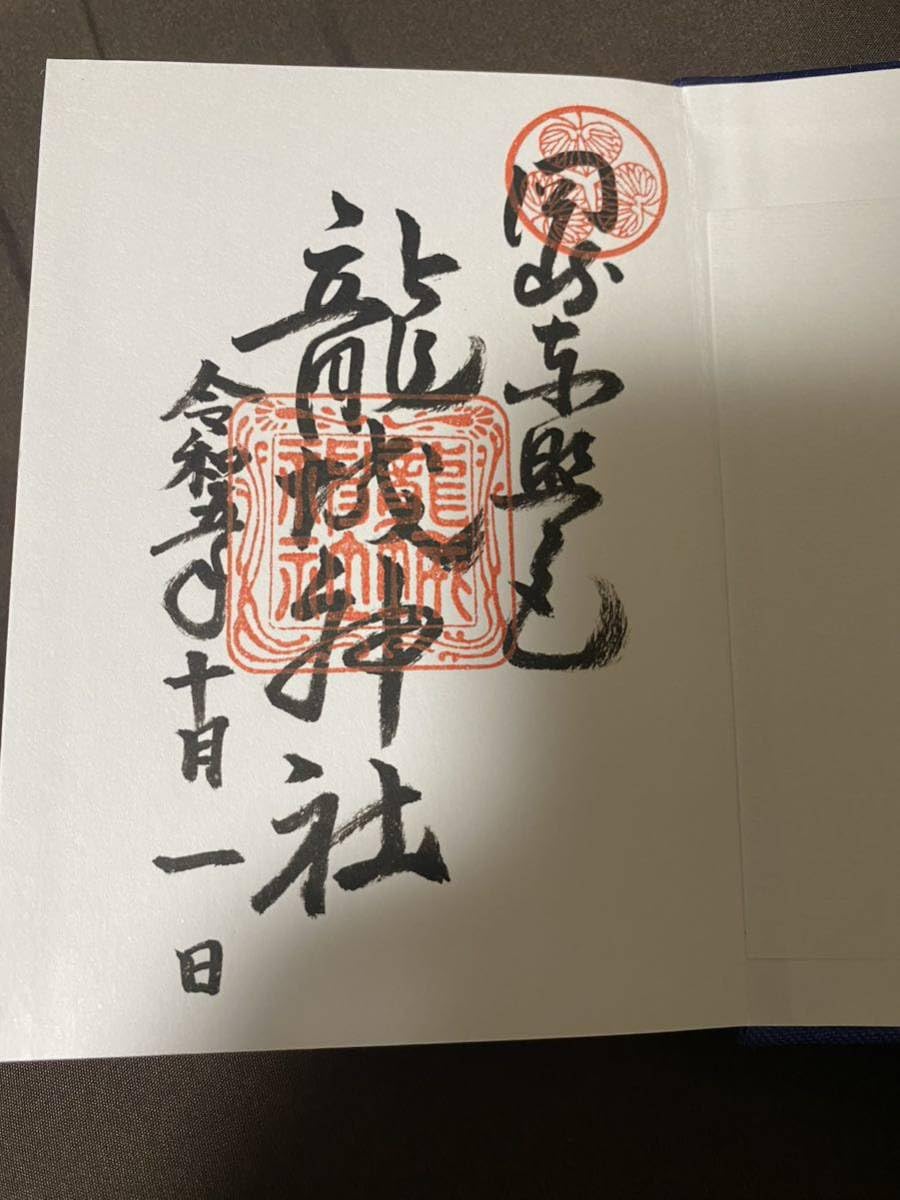 岡崎東照宮
龍城神社
令和五年十月一日
龍城神社